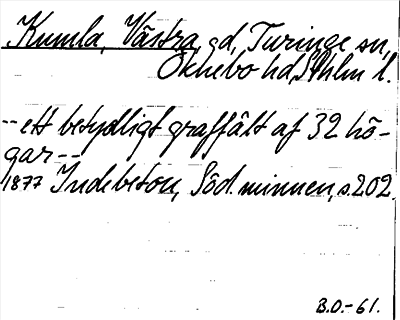 Kumla, Västra, gd, Turinge sn,
Öknebo hd, Sthlm l.
-- ett betydligt graffält af 32 hö-
gar --
1877 Indebetou, Söd. minnen, s. 202.
B.O.-61.